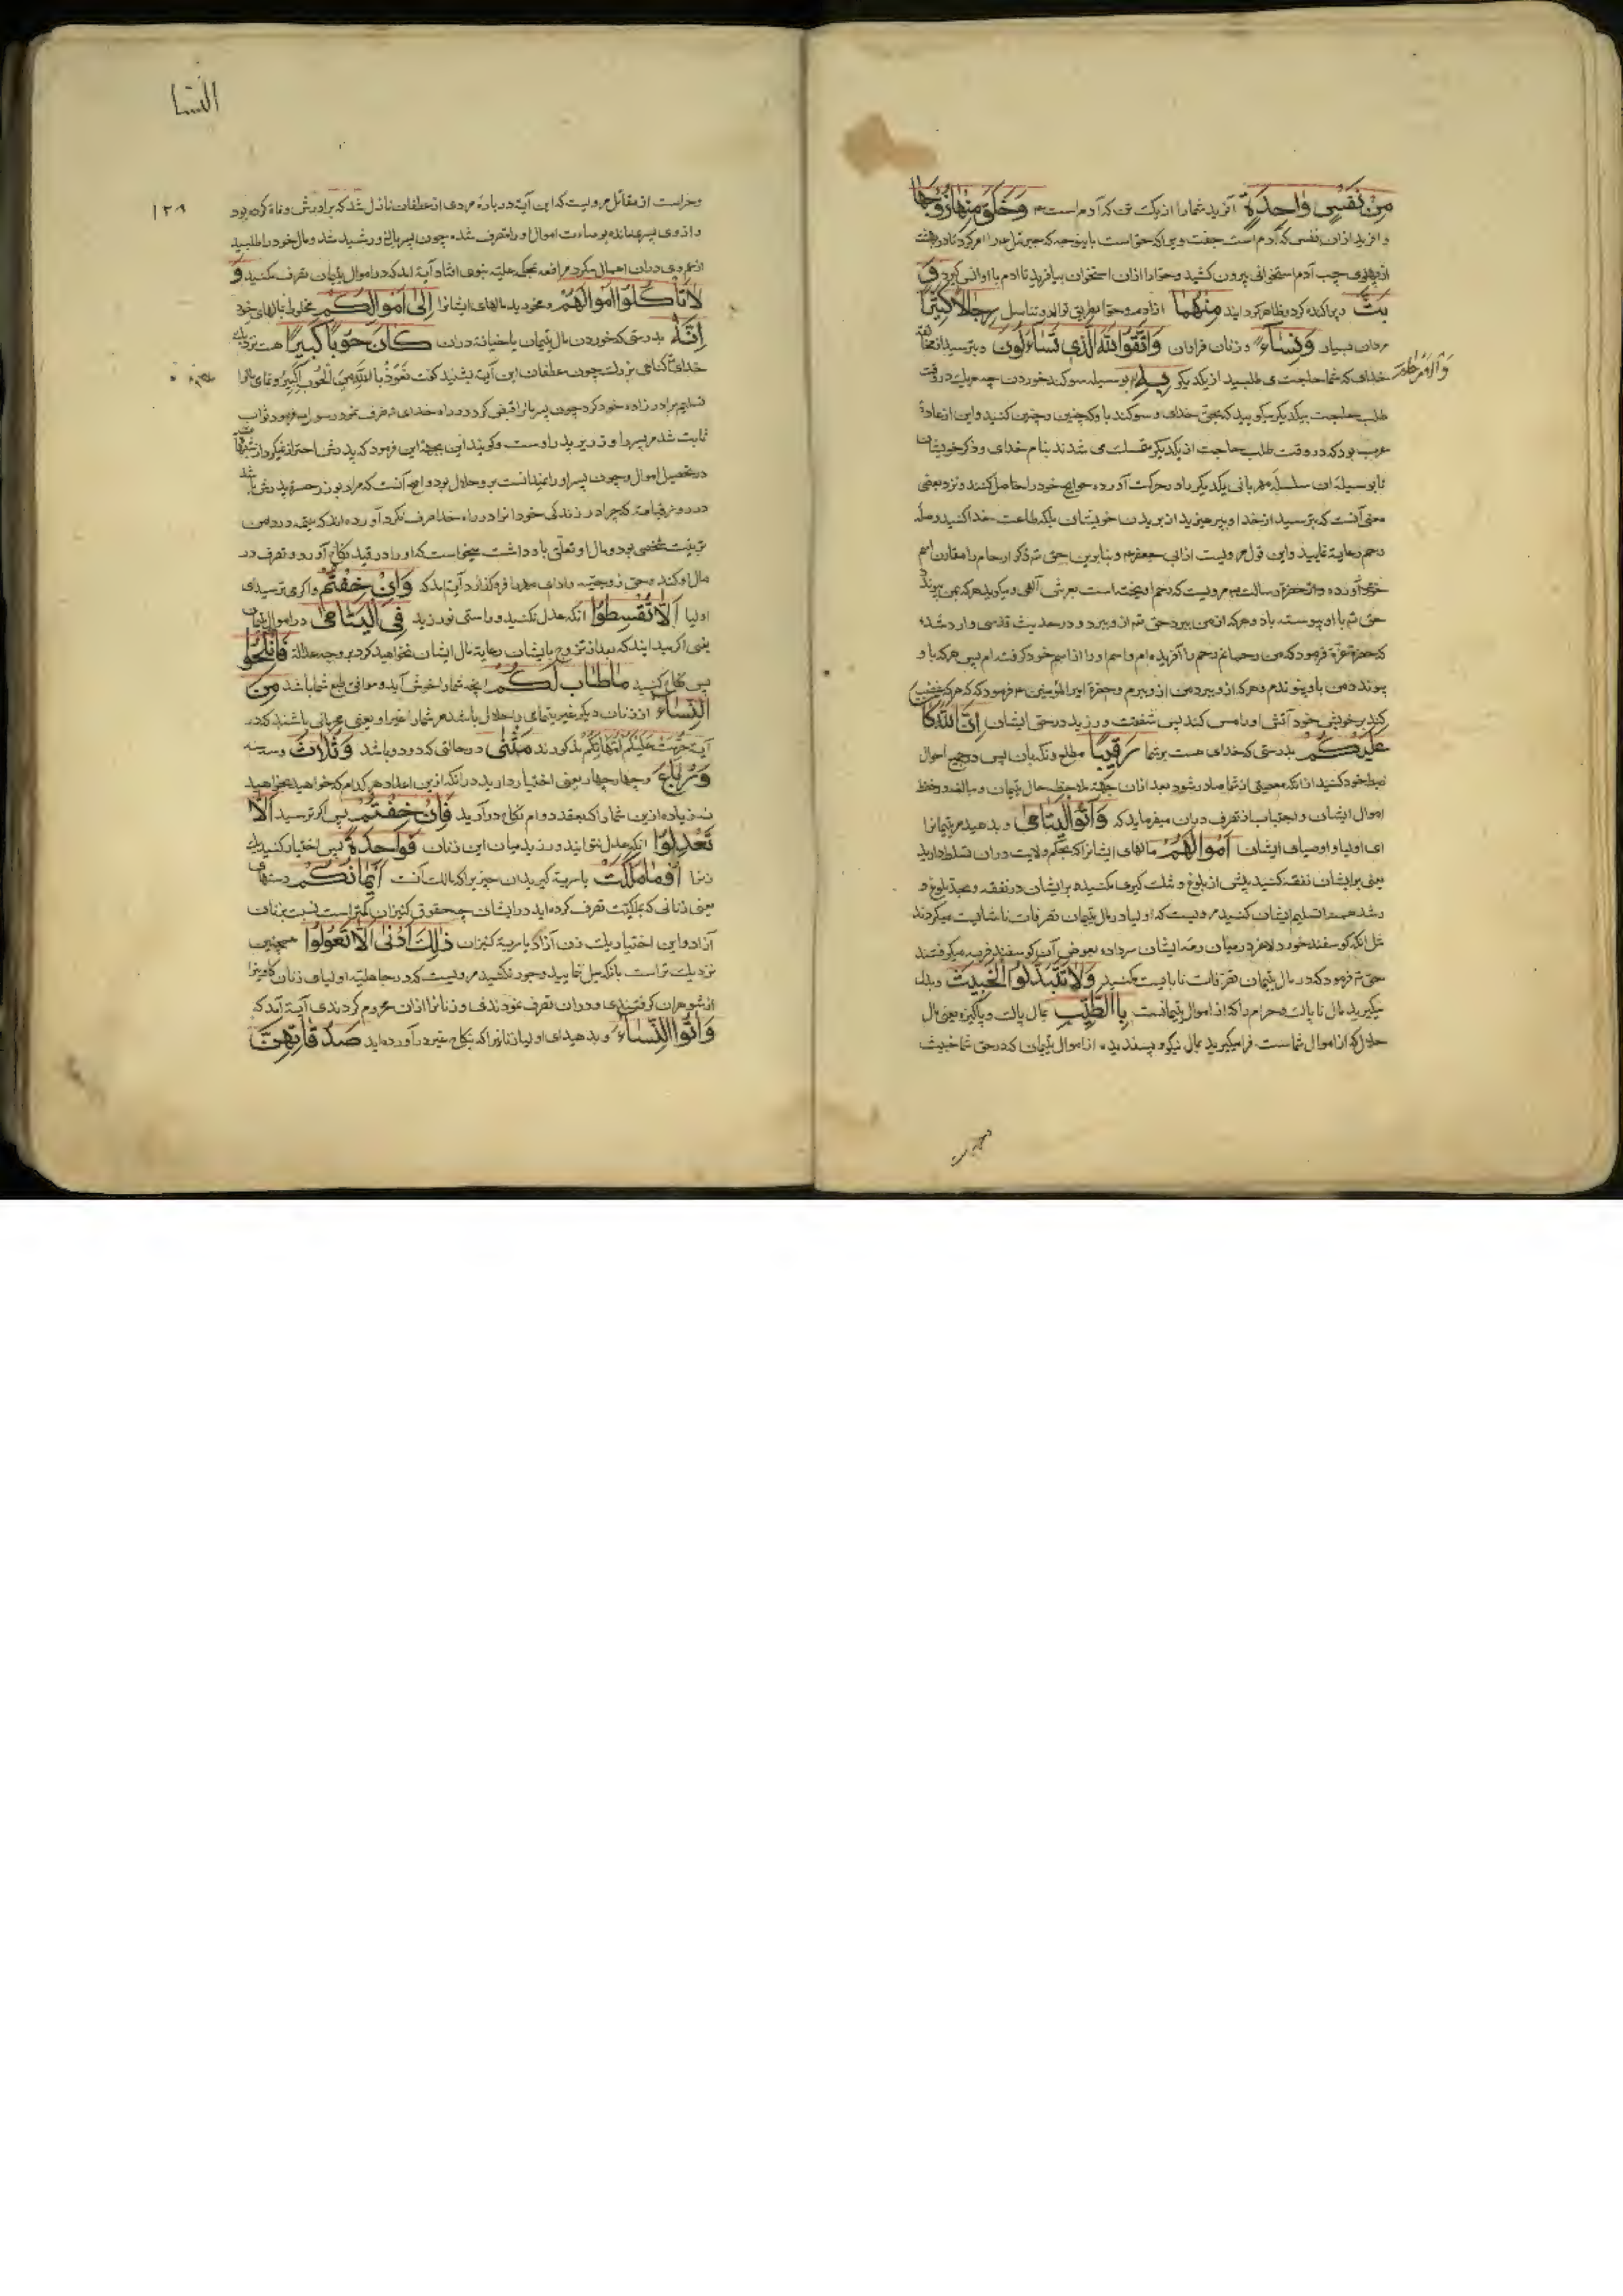 مِنْ نَفْسٍ وَاحِدَةٍ آفرید شما را از یک تن که آدم است ۴ وَخَلَقَ مِنْهَا زَوْجَهَا
و آفرید از آن نفس که آدم است جفت ویرا که حوا است
از پهلوی چپ آدم استخوانی بیرون کشید و حوا را از آن استخوان بیافرید تا آدم با او انس گیرد وَ
بَثَّ و پراکنده کرد و ظاهر گردانید مِنْهُمَا از آدم و حوا بطریق توالد و تناسل رِجَالًا كَثِيرًا
مردان بسیار وَنِسَاءً و زنان فراوان وَاتَّقُوا اللَّهَ الَّذِي تَسَاءَلُونَ و بترسید از مخالفة
خدای که شما حاجت می طلبید از یکدیگر بِهِ بوسیله سوکند خوردن چه هر یک در وقت
وَالْأَرْحَامَ
طلب حاجت بیکدیگر میکویید که بحق خدای و سوکند باو که چنین و چنین کنید و این از عادة
عرب بود که در وقت طلب حاجت از یکدیگر متمسک می شدند بنام خدای و ذکر خویشان
تا بوسیله آن سلسله مهربانی یکدیگر را در حرکت آورده حوایج خود را حاصل کنند و نزد بعضی
معنی آنست که بترسید از خدا و بپرهیزید از بریدن خویشان بلکه طاعت خدا کنید و صله
رحم رعایة نمایید و این قول مرویست از ابی جعفر ۴ و بنابرین حق تع ذکر ارحام را مقارن اسم
خود آورده و از حضرة رسالت مرویست که رحم آویخته است بعرش الهی و میکوید هر که بمن پیوندد
حق تع با او پیوسته باد و هر که از من ببرد حق تع از و ببرد و در حدیث قدسی وارد شده
که حضرة عزة فرمود که من رحمانم رحم را آفریده ام و اسم او را از اسم خود کرفته ام پس هر که با و
پیوندد من باو پیوندم و هر که از و ببرد من از و ببرم و حضرة امیر المؤمنین ۴ فرمود که هر که غضب
کند بر خویش خود آنش او را مس کند پس شفقت ورزید در حق ایشان إِنَّ اللَّهَ كَانَ
عَلَيْكُمْ بدرستی که خدای هست بر شما رَقِيبًا مطلع و نکهبان پس در جمیع احوال
ضبط خود کنید از آنکه معصیتی از شما صادر شود بعد از آن بجهة ملاحظه حال یتیمان و مبالغه در حفظ
اموال ایشان و اجتناب از تصرف در آن میفرماید که وَآتُوا الْيَتَامَى و بدهید مر یتیمانرا
ای اولیا و اوصیای ایشان أَمْوَالَهُمْ مالهای ایشانرا که بحکم ولایت در آن تسلط دارید
یعنی بر ایشان نفقه کنید پیش از بلوغ و بعد بلوغ و
رشد همه را تسلیم ایشان کنید مرویست که اولیا در مال یتیمان تصرفات ناشایست میکردند
مثل آنکه کوسفند خورد لاغر در میان رمه ایشان سر داده بعوض آن کوسفند فربه میکرفتند
حق تع فرمود که در مال یتیمان تصرفات نابایست مکنید وَلَا تَتَبَدَّلُوا الْخَبِيثَ و بدل
مکیرید مال ناپاک و حرام را که از اموال یتیمانست بِالطَّيِّبِ بمال پاک و پاکیزه یعنی مال
حلال که از اموال شماست فرا مکیرید مال نیکو و پسندیده از اموال یتیمان که در حق شما خبیث
النسا
۱۳۹
و حرامست از مقاتل مرویست که این آیة در بارهٔ مردی از غطفان نازل شد که برادرش وفاة کرده بود
و از وی پسری مانده بوصایت اموال او را متصرف شده چون پسر بالغ و رشید شد و مال خود را طلبید
از عم وی در آن اهمال میکرد مرافعه بمحکمهٔ علیهٔ نبوی افتاد آیة آمد که در اموال یتیمان تصرف مکنید وَ
لَا تَأْكُلُوا أَمْوَالَهُمْ و مخورید مالهای ایشانرا إِلَى أَمْوَالِكُمْ مخلوط بمالهای خود
إِنَّهُ بدرستی که خوردن مال یتیمان یا خیانة در آن كَانَ حُوبًا كَبِيرًا هست نزدیک
خدای کناهی بزرک چون غطفان این آیة بشنید کفت نَعُوذُ بِاللَّهِ مِنَ الْحُوبِ الْكَبِيرِ و تمامی مال را
تسلیم برادر زاده خود کرد چون پسر مال را قبض کرد در راه خدای صرف نمود رسول فرمود ثواب
ثابت شد مر پسر را و وزر پدر راست و کویند این بجهة این فرمود که پدرش احتراز نمیکرد از شبهات
در تحصیل اموال و چون پسر او را نمیدانست برو حلال بود و اصح آنست که مراد بوزر حسرة پدرش باشد
در روز قیامة که چرا در زندکی خود آنرا در راه خدا صرف نکرد آورده اند که یتیمه در دامن
تربیت شخصی بود و مال او تعلق باو داشت میخواست که او را در قید نکاح آورد و تصرف در
مال او کند و حق زوجیة و ادای مهر را فرو کذارد آیة آمد که وَإِنْ خِفْتُمْ و اکر می ترسید ای
اولیا أَلَّا تُقْسِطُوا آنکه عدل نکنید و راستی نورزید فِي الْيَتَامَى در اموال یتیمان
یعنی اکر میدانید که بعد از تزوج بایشان رعایة مال ایشان نخواهید کرد بر وجه عدالة فَانْكِحُوا
پس نکاح کنید مَا طَابَ لَكُمْ آنچه شما را خوش آید و موافق طبع شما باشد مِنَ
النِّسَاءِ از زنان دیکر غیر یتامی یا حلال باشد مر شما را
آیة حُرِّمَتْ عَلَيْكُمْ أُمَّهَاتُكُمْ مذکورند مَثْنَى در حالتی که دو دو باشد وَثُلَاثَ و سه سه
وَرُبَاعَ و چهار چهار یعنی اختیار دارید در آنکه ازین اعداد هر کدام که خواهید بخواهید
نه زیاده ازین شمار که بعقد دوام نکاح در آرید فَإِنْ خِفْتُمْ پس اکر ترسید أَلَّا
تَعْدِلُوا آنکه عدل نتوانید ورزید میان این زنان فَوَاحِدَةً پس اختیار کنید یک
زنرا أَوْ مَا مَلَكَتْ یا سریة کیرید آن چیز را که مالک آنست أَيْمَانُكُمْ دستهای
یعنی زنانی که بملکیّت تصرف کرده اید در ایشان چه حقوق کنیزان کمتر است نسبت بزنان
آزاد و این اختیار یک زن آزاد یا سریة کنیزان ذَلِكَ أَدْنَى أَلَّا تَعُولُوا همچنین
نزدیک تر است بآنکه میل ننمایید و جور نکنید مرویست که در جاهلیة اولیای زنان کابین را
از شوهران کرفتندی و در آن تصرف نمودندی و زنانرا از آن محروم کردندی آیة آمد که
وَآتُوا النِّسَاءَ و بدهید ای اولیا زنانیرا که بنکاح غیر در آورده اید صَدُقَاتِهِنَّ